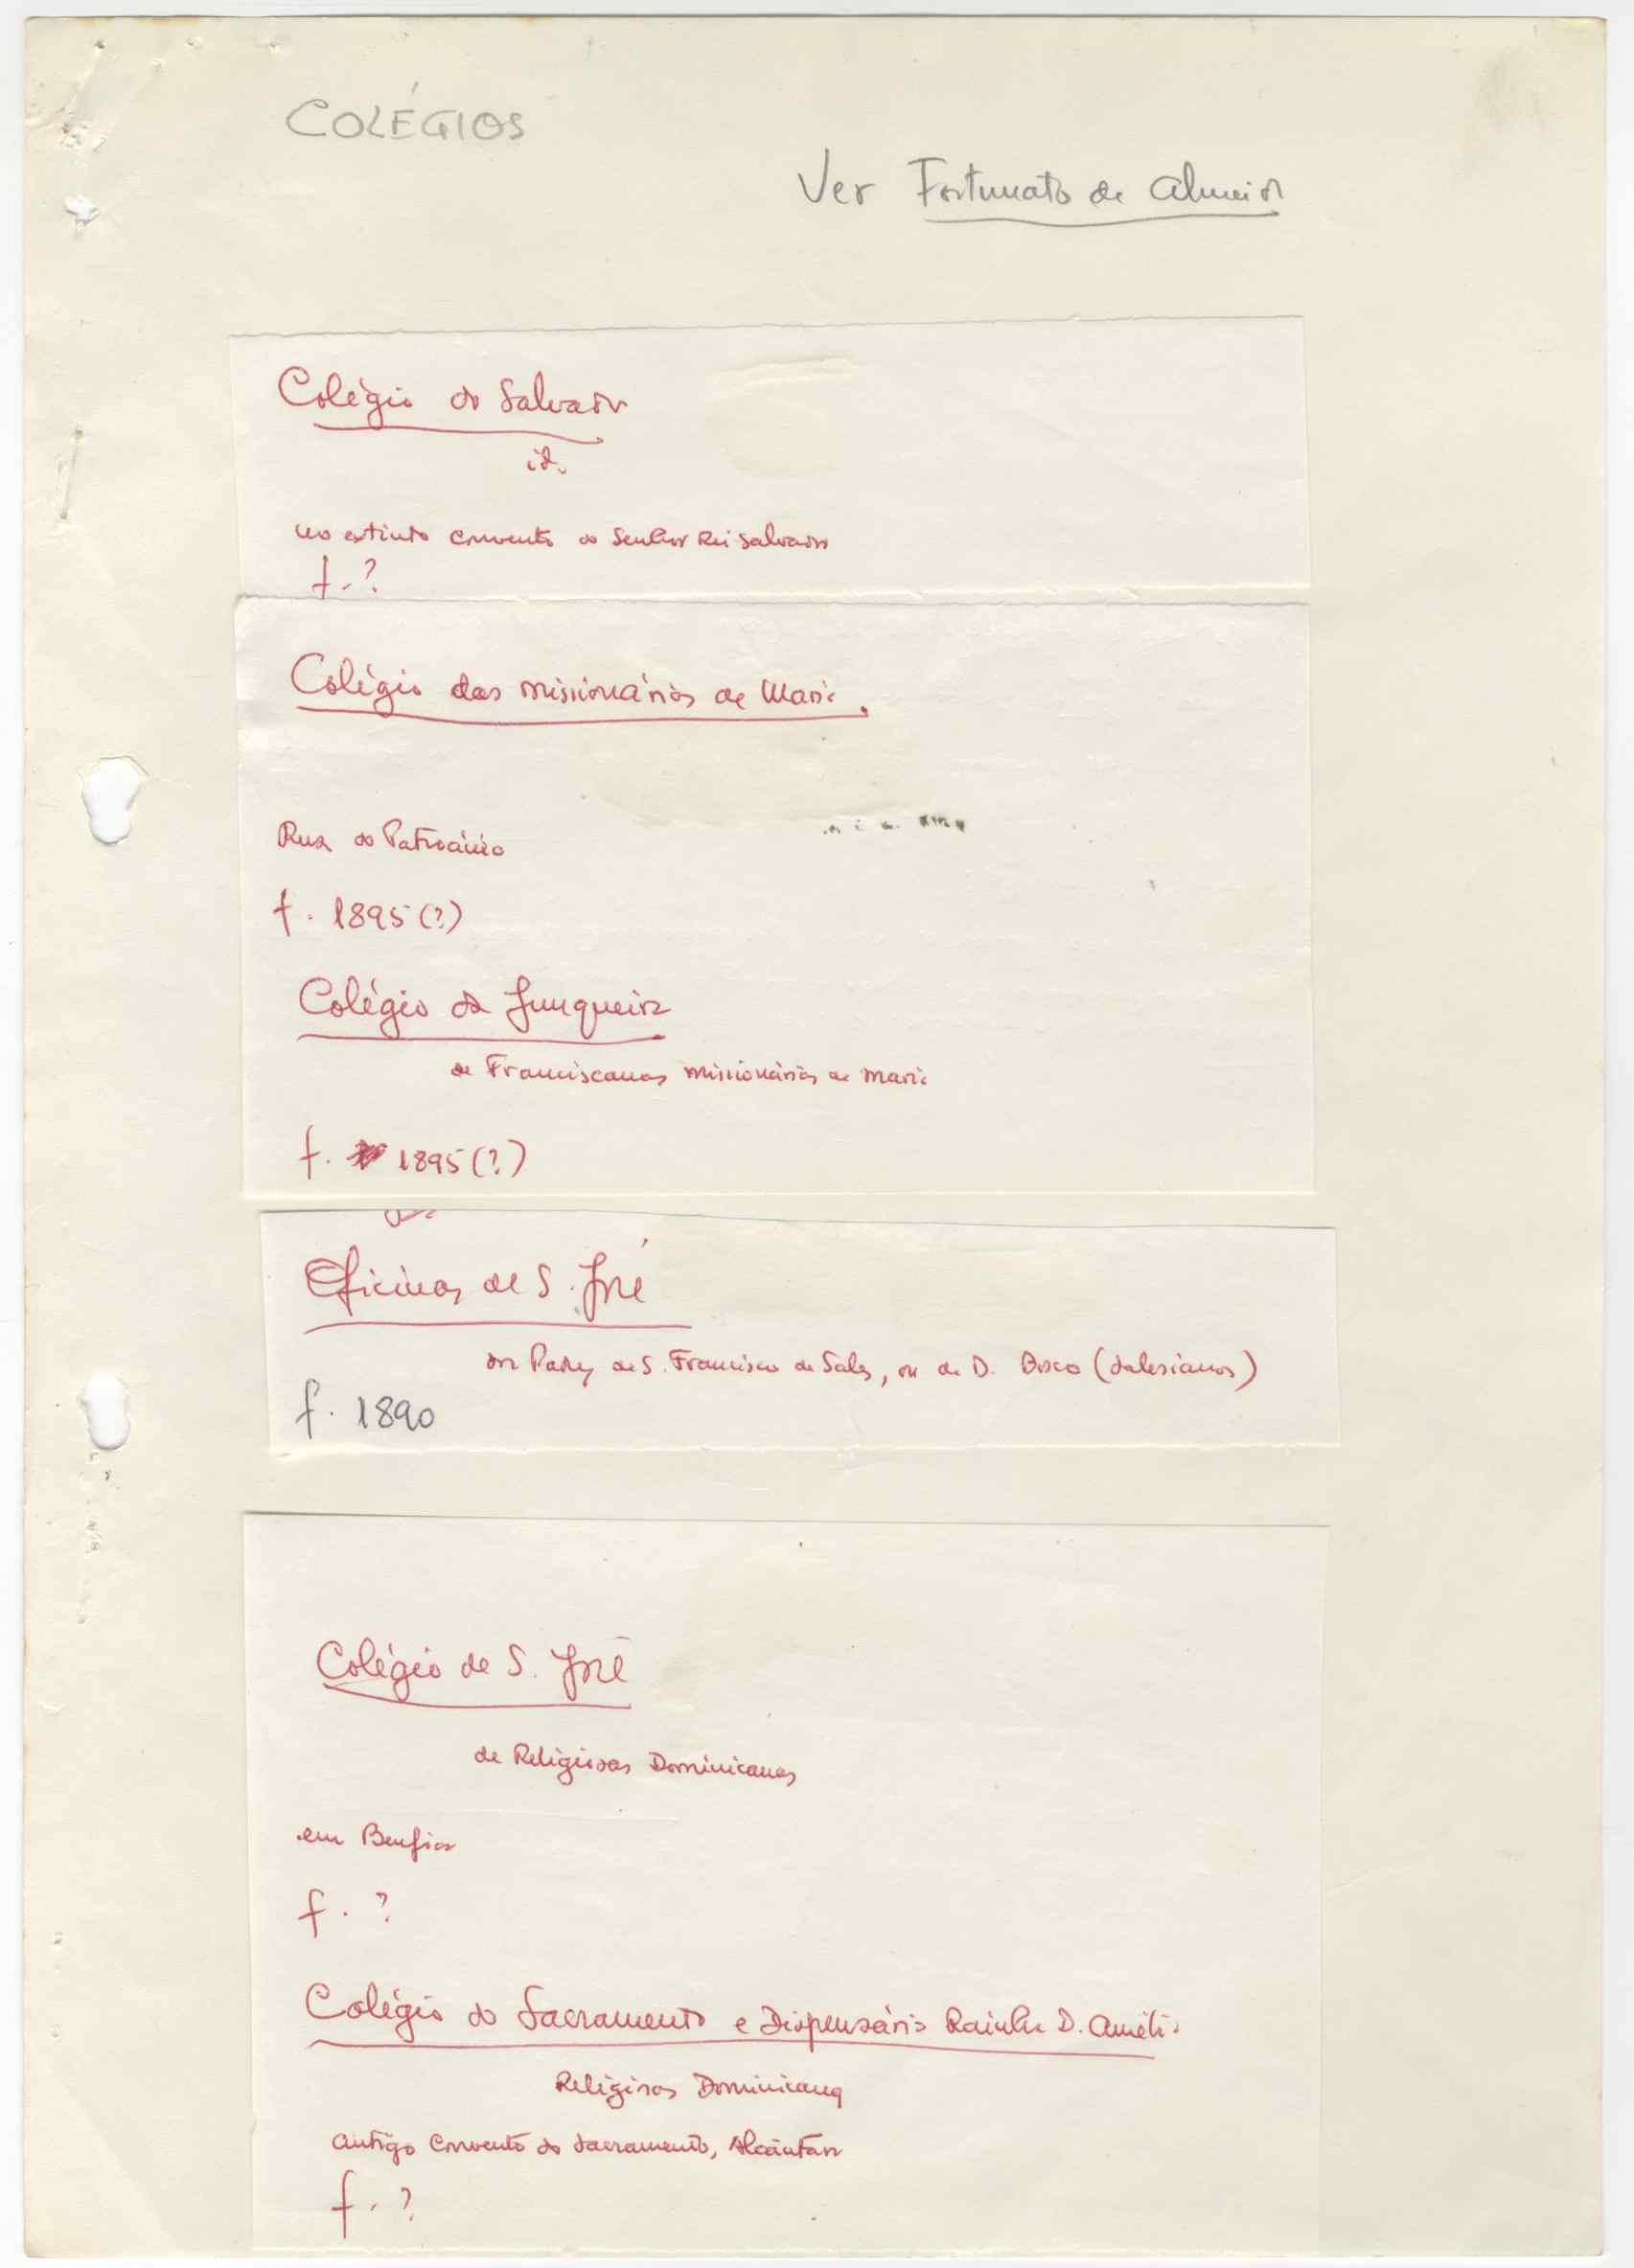 COLÉGIOS
Ver Fortunato de Almeida
Colégio do Salvador
id.
no extinto convento do Senhor Rei Salvador
f. ?
Colégio das missionárias de Maria.
Rua do Patrocínio
f. 1895 (?)
Colégio da Junqueira
de Franciscanas missionárias de Maria
f. 1895 (?)
Oficinas de S. José
dos Padres de S. Francisco de Sales, ou de D. Bosco (Salesianos)
f. 1890
Colégio de S. José
de Religiosas Dominicanas
em Benfica
f. ?
Colégio do Sacramento e Dispensário Rainha D. Amélia
Religiosas Dominicanas
antigo Convento do Sacramento, Alcântara
f. ?